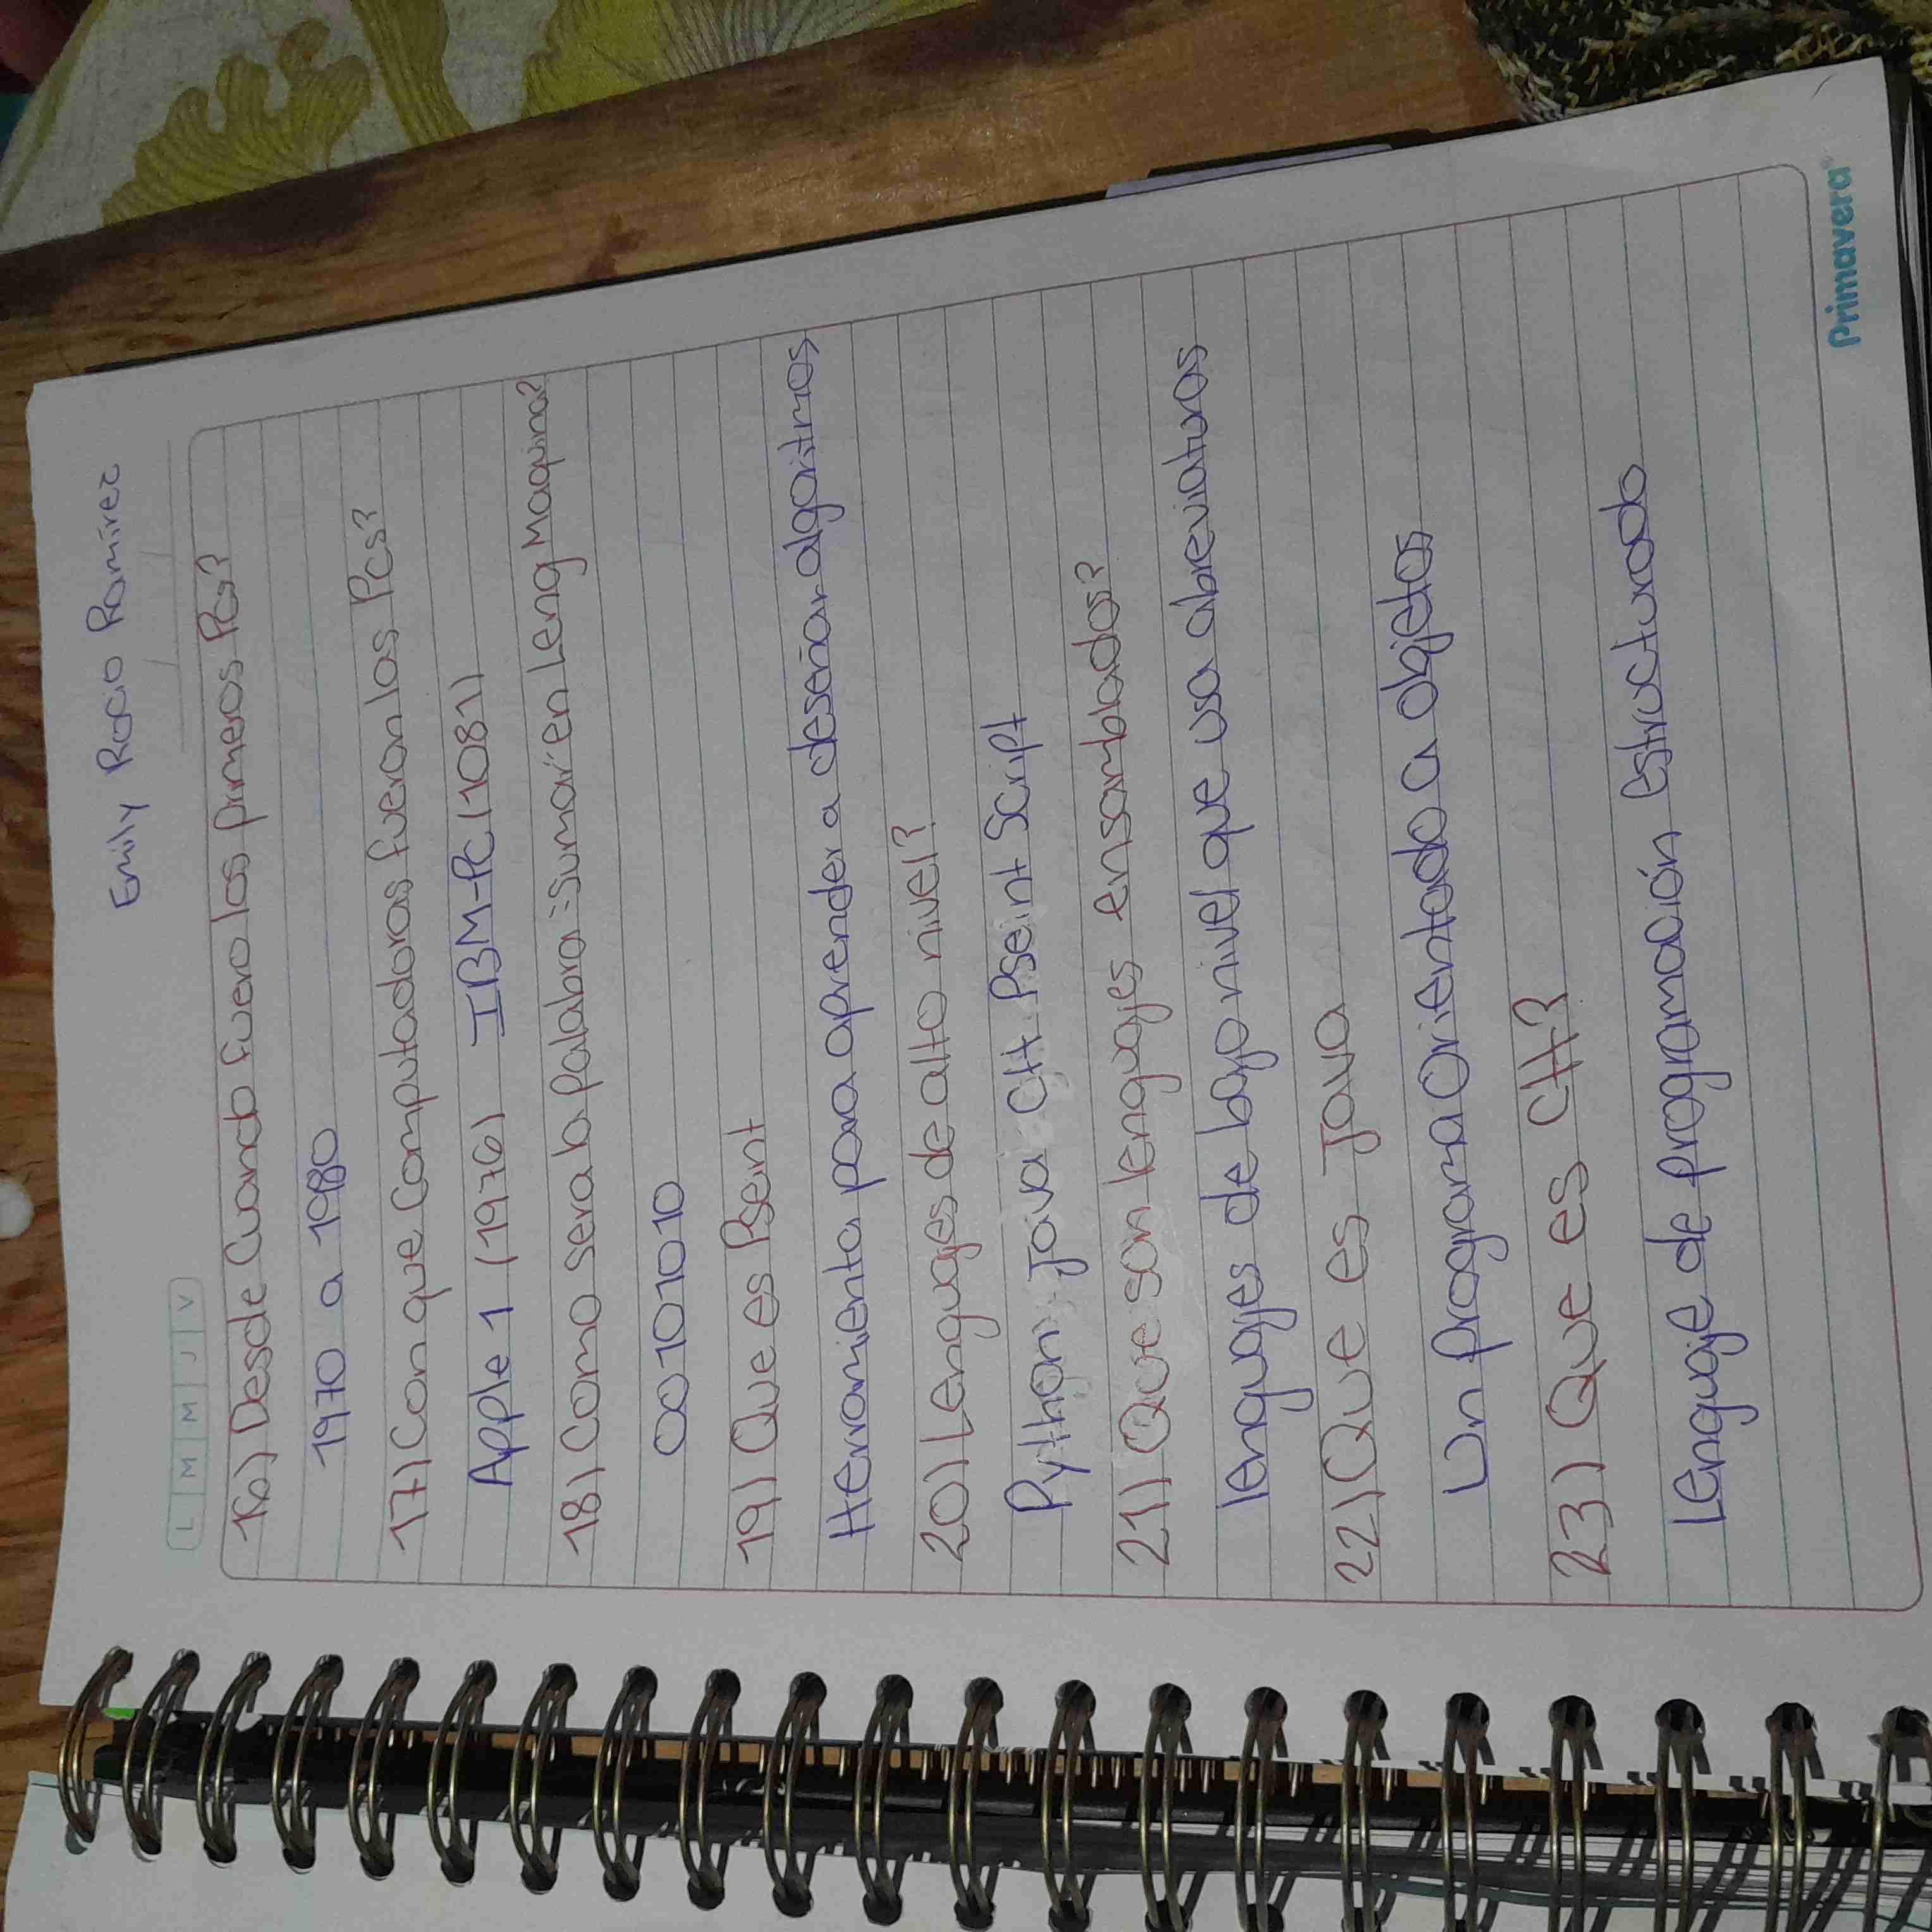 Emily Rocio Ramirez
L M M J V
16) Desde Cuando fuero los primeros Pcs?
1970 a 1980
17) Con que Computadoras fueron los Pcs?
Apple 1 (1976) IBM-PC (1081)
18) Como sera la palabra "Sumar" en Leng Maquina?
0010 1010
19) Que es Pseint
Herramienta para aprender a deseñar algoritmos
20) Lenguajes de alto nivel?
Python Java C++ Pseint Script
21) Que son lenguajes ensamblados?
lenguajes de bajo nivel que usa abreviaturas
22) Que es Java
Un programa Orientado a objetos
23) Que es C++?
Lenguaje de programación estructurado
Primavera